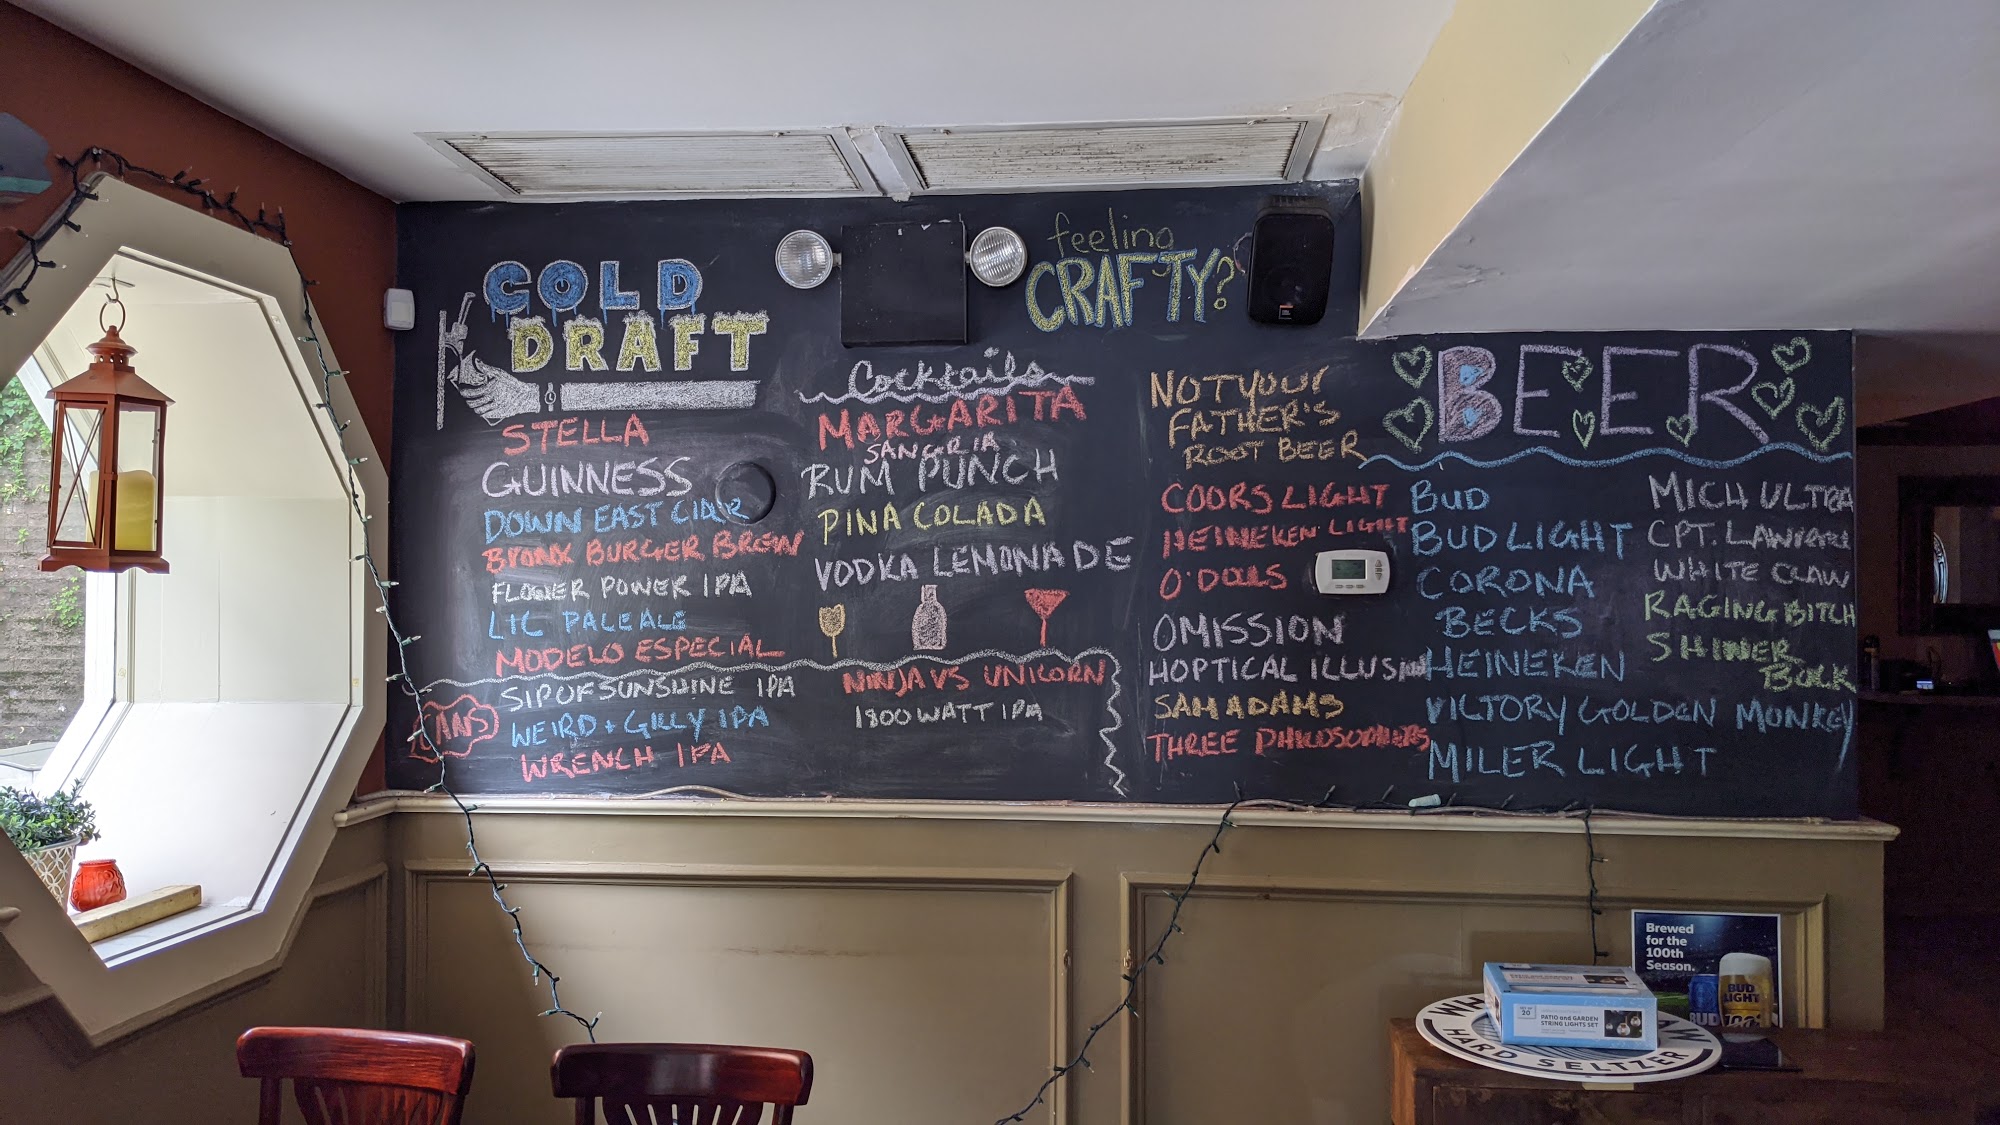 COLD
DRAFT
STELLA
GUINNESS
DOWN EAST CIDER
BRONX BURGER BREW
FLOWER POWER IPA
LIC PALE ALE
MODELO ESPECIAL
CANS
SIP OF SUNSHINE IPA
WEIRD + GILLY IPA
WRENCH IPA
Cocktails
MARGARITA
SANGRIA
RUM PUNCH
PINA COLADA
VODKA LEMONADE
NINJA VS UNICORN
1800 WATT IPA
feeling
CRAFTY?
NOT YOUR
FATHER'S
ROOT BEER
COORS LIGHT
HEINEKEN LIGHT
O'DOULS
OMISSION
HOPTICAL ILLUSION
SAM ADAMS
THREE PHILOSOPHERS
BEER
BUD
BUD LIGHT
CORONA
BECKS
HEINEKEN
VICTORY GOLDEN MONKEY
MILER LIGHT
MICH ULTRA
CPT. LAWRENCE
WHITE CLAW
RAGING BITCH
SHINER
BOCK
Brewed
for the
100th
Season.
BUD
LIGHT
SET OF
20
PATIO and GARDEN
STRING LIGHTS SET
HARD SELTZER